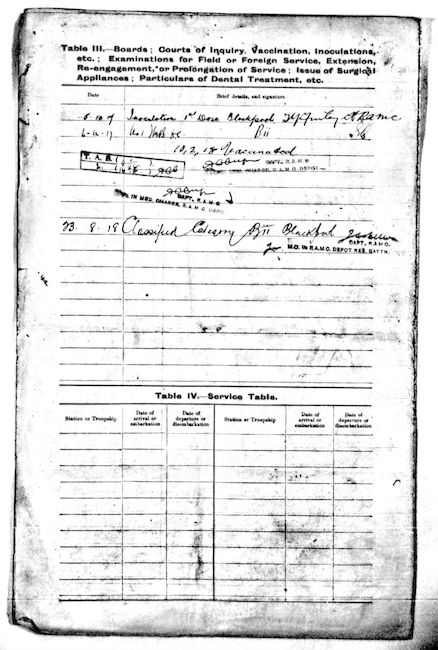 Table III.—Boards; Courts of Inquiry, Vaccination, Inoculations,
etc.; Examinations for Field or Foreign Service, Extension,
Re-engagement, or Prolongation of Service; Issue of Surgical
Appliances; Particulars of Dental Treatment, etc.
Date
Brief details, and signature
Inoculation 1st Dose Blackpool RAMC
Bii
10, 2, 18 Vaccinated
T. A. B.
CAPT., R.A.M.C
CHARGE, R.A.M.C. DEPOT
CAPT., R.A.M.C
IN MED. CHARGE, R.A.M.C. DEPOT
23. 8. 18 Classified Category Bii Blackpool
CAPT., R.A.M.C.
for M.O. i/c R.A.M.C. DEPOT RES. BATTN.
Table IV.—Service Table.
Station or Troopship
Date of arrival or embarkation
Date of departure or disembarkation
Station or Troopship
Date of arrival or embarkation
Date of departure or disembarkation